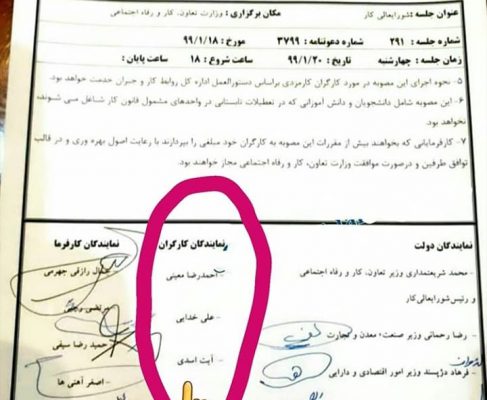 عنوان جلسه : شورایعالی کار
مکان برگزاری : وزارت تعاون، کار و رفاه اجتماعی
شماره جلسه : ۲۹۱ شماره دعوتنامه : ۳۷۹۹ مورخ : ۹۹/۱/۱۸
زمان جلسه : چهارشنبه تاریخ : ۹۹/۱/۲۰ ساعت شروع : ۱۸ ساعت پایان :
۵- نحوه اجرای این مصوبه در مورد کارگران کارمزدی براساس دستورالعمل اداره کل روابط کار و جبران خدمت خواهد بود.
۶- این مصوبه شامل دانشجویان و دانش آموزانی که در تعطیلات تابستانی در واحدهای مشمول قانون کار شاغل می شوند،
نخواهد بود.
۷- کارفرمایانی که بخواهند بیش از مقررات این مصوبه به کارگران خود مبلغی را بپردازند با رعایت اصول بهره وری و در قالب
توافق طرفین و درصورت موافقت وزارت تعاون، کار و رفاه اجتماعی مجاز خواهند بود.
نمایندگان دولت
- محمد شریعتمداری وزیر تعاون، کار و رفاه اجتماعی
و رئیس شورایعالی کار
- رضا رحمانی وزیر صنعت، معدن و تجارت
- فرهاد دژپسند وزیر امور اقتصادی و دارایی
نمایندگان کارگران
- احمدرضا معینی
- علی خدایی
- آیت اسدی
نمایندگان کارفرما
جمال رازقی جهرمی
- حمید رضا سیفی
- اصغر آهنی ها